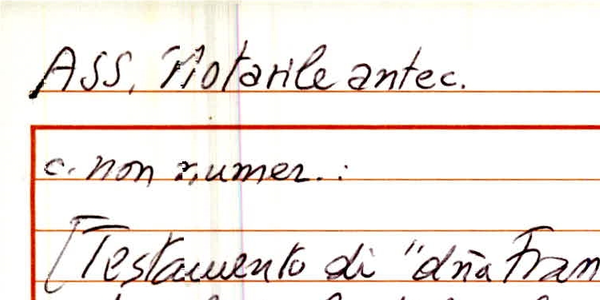 ASS, Notarile antec.
c. non numer. :
[Testamento di "dña Fran